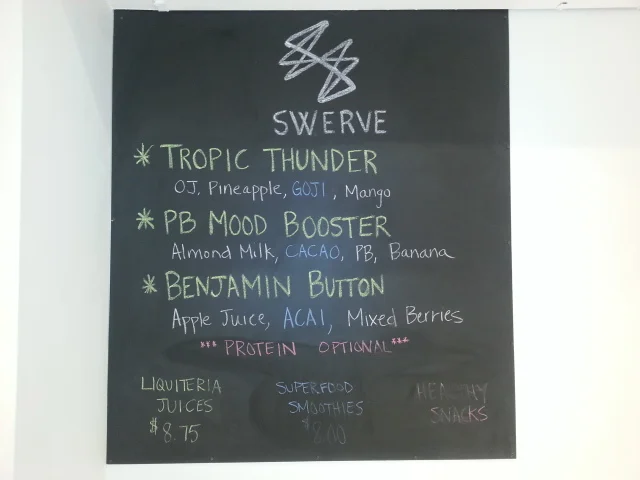 SWERVE
* TROPIC THUNDER
OJ, Pineapple, GOJI, Mango
* PB MOOD BOOSTER
Almond Milk, CACAO, PB, Banana
* BENJAMIN BUTTON
Apple Juice, ACAI, Mixed Berries
*** PROTEIN OPTIONAL***
LIQUITERIA
JUICES
$8.75
SUPERFOOD
SMOOTHIES
$8.00
HEALTHY
SNACKS